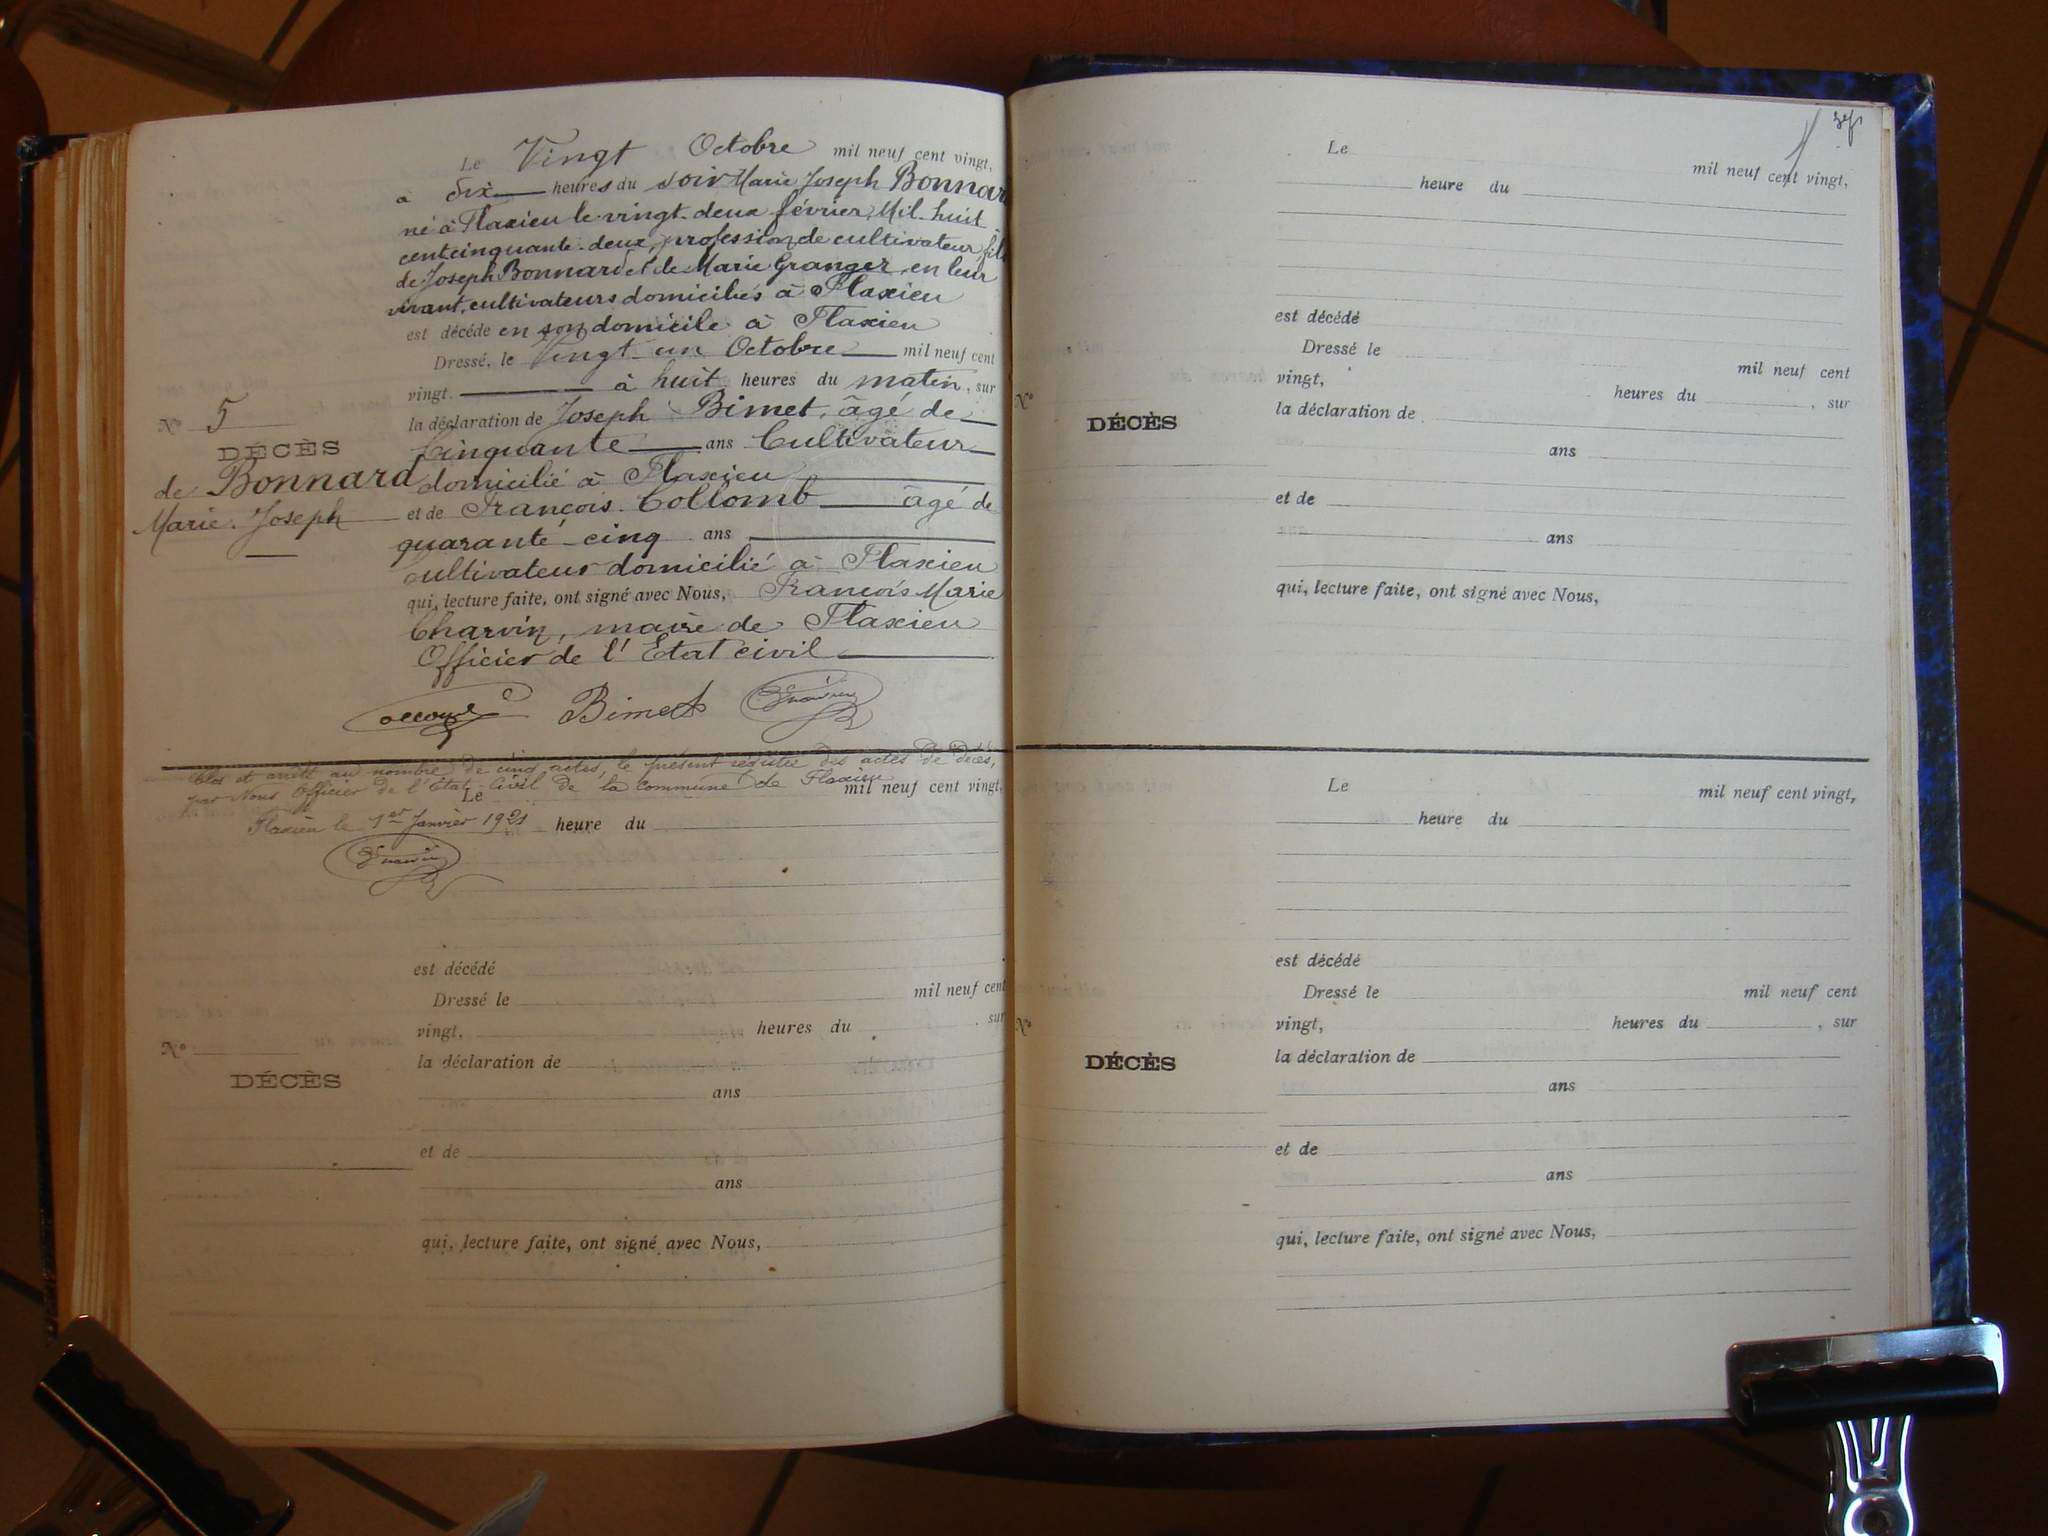 Le Vingt Octobre mil neuf cent vingt,
à dix heures du soir Marie Joseph Bonnard
né à Flaxieu le vingt-deux février, Mil-huit
cent cinquante-deux, profession de cultivateur, fils
de Joseph Bonnard et de Marie Granger, en leur
vivant, cultivateurs domiciliés à Flaxieu
est décédé en son domicile à Flaxieu
Dressé, le Vingt-un Octobre mil neuf cent
vingt. à huit heures du matin, sur
la déclaration de Joseph Bimet, âgé de
Cinquante ans Cultivateur
domicilié à Flaxieu
et de François Collomb âgé de
quarante-cinq ans
cultivateur domicilié à Flaxieu
qui, lecture faite, ont signé avec Nous, François Marie
Charvin, maire de Flaxieu
Officier de l'Etat civil
Bimet
N° 5
DÉCÈS
de Bonnard
Marie Joseph
Clos et arrêté au nombre de cinq actes, le présent registre des actes de décès,
par Nous Officier de l'Etat-Civil de la commune de Flaxieu
Flaxieu le 1er Janvier 1921
Le mil neuf cent vingt,
heure du
est décédé
Dressé le mil neuf cent
vingt, heures du , sur
la déclaration de
ans
et de
ans
qui, lecture faite, ont signé avec Nous,
N°
DÉCÈS
Le mil neuf cent vingt,
heure du
est décédé
Dressé le mil neuf cent
vingt, heures du , sur
la déclaration de
ans
et de
ans
qui, lecture faite, ont signé avec Nous,
N°
DÉCÈS
Le mil neuf cent vingt,
heure du
est décédé
Dressé le mil neuf cent
vingt, heures du , sur
la déclaration de
ans
et de
ans
qui, lecture faite, ont signé avec Nous,
N°
DÉCÈS